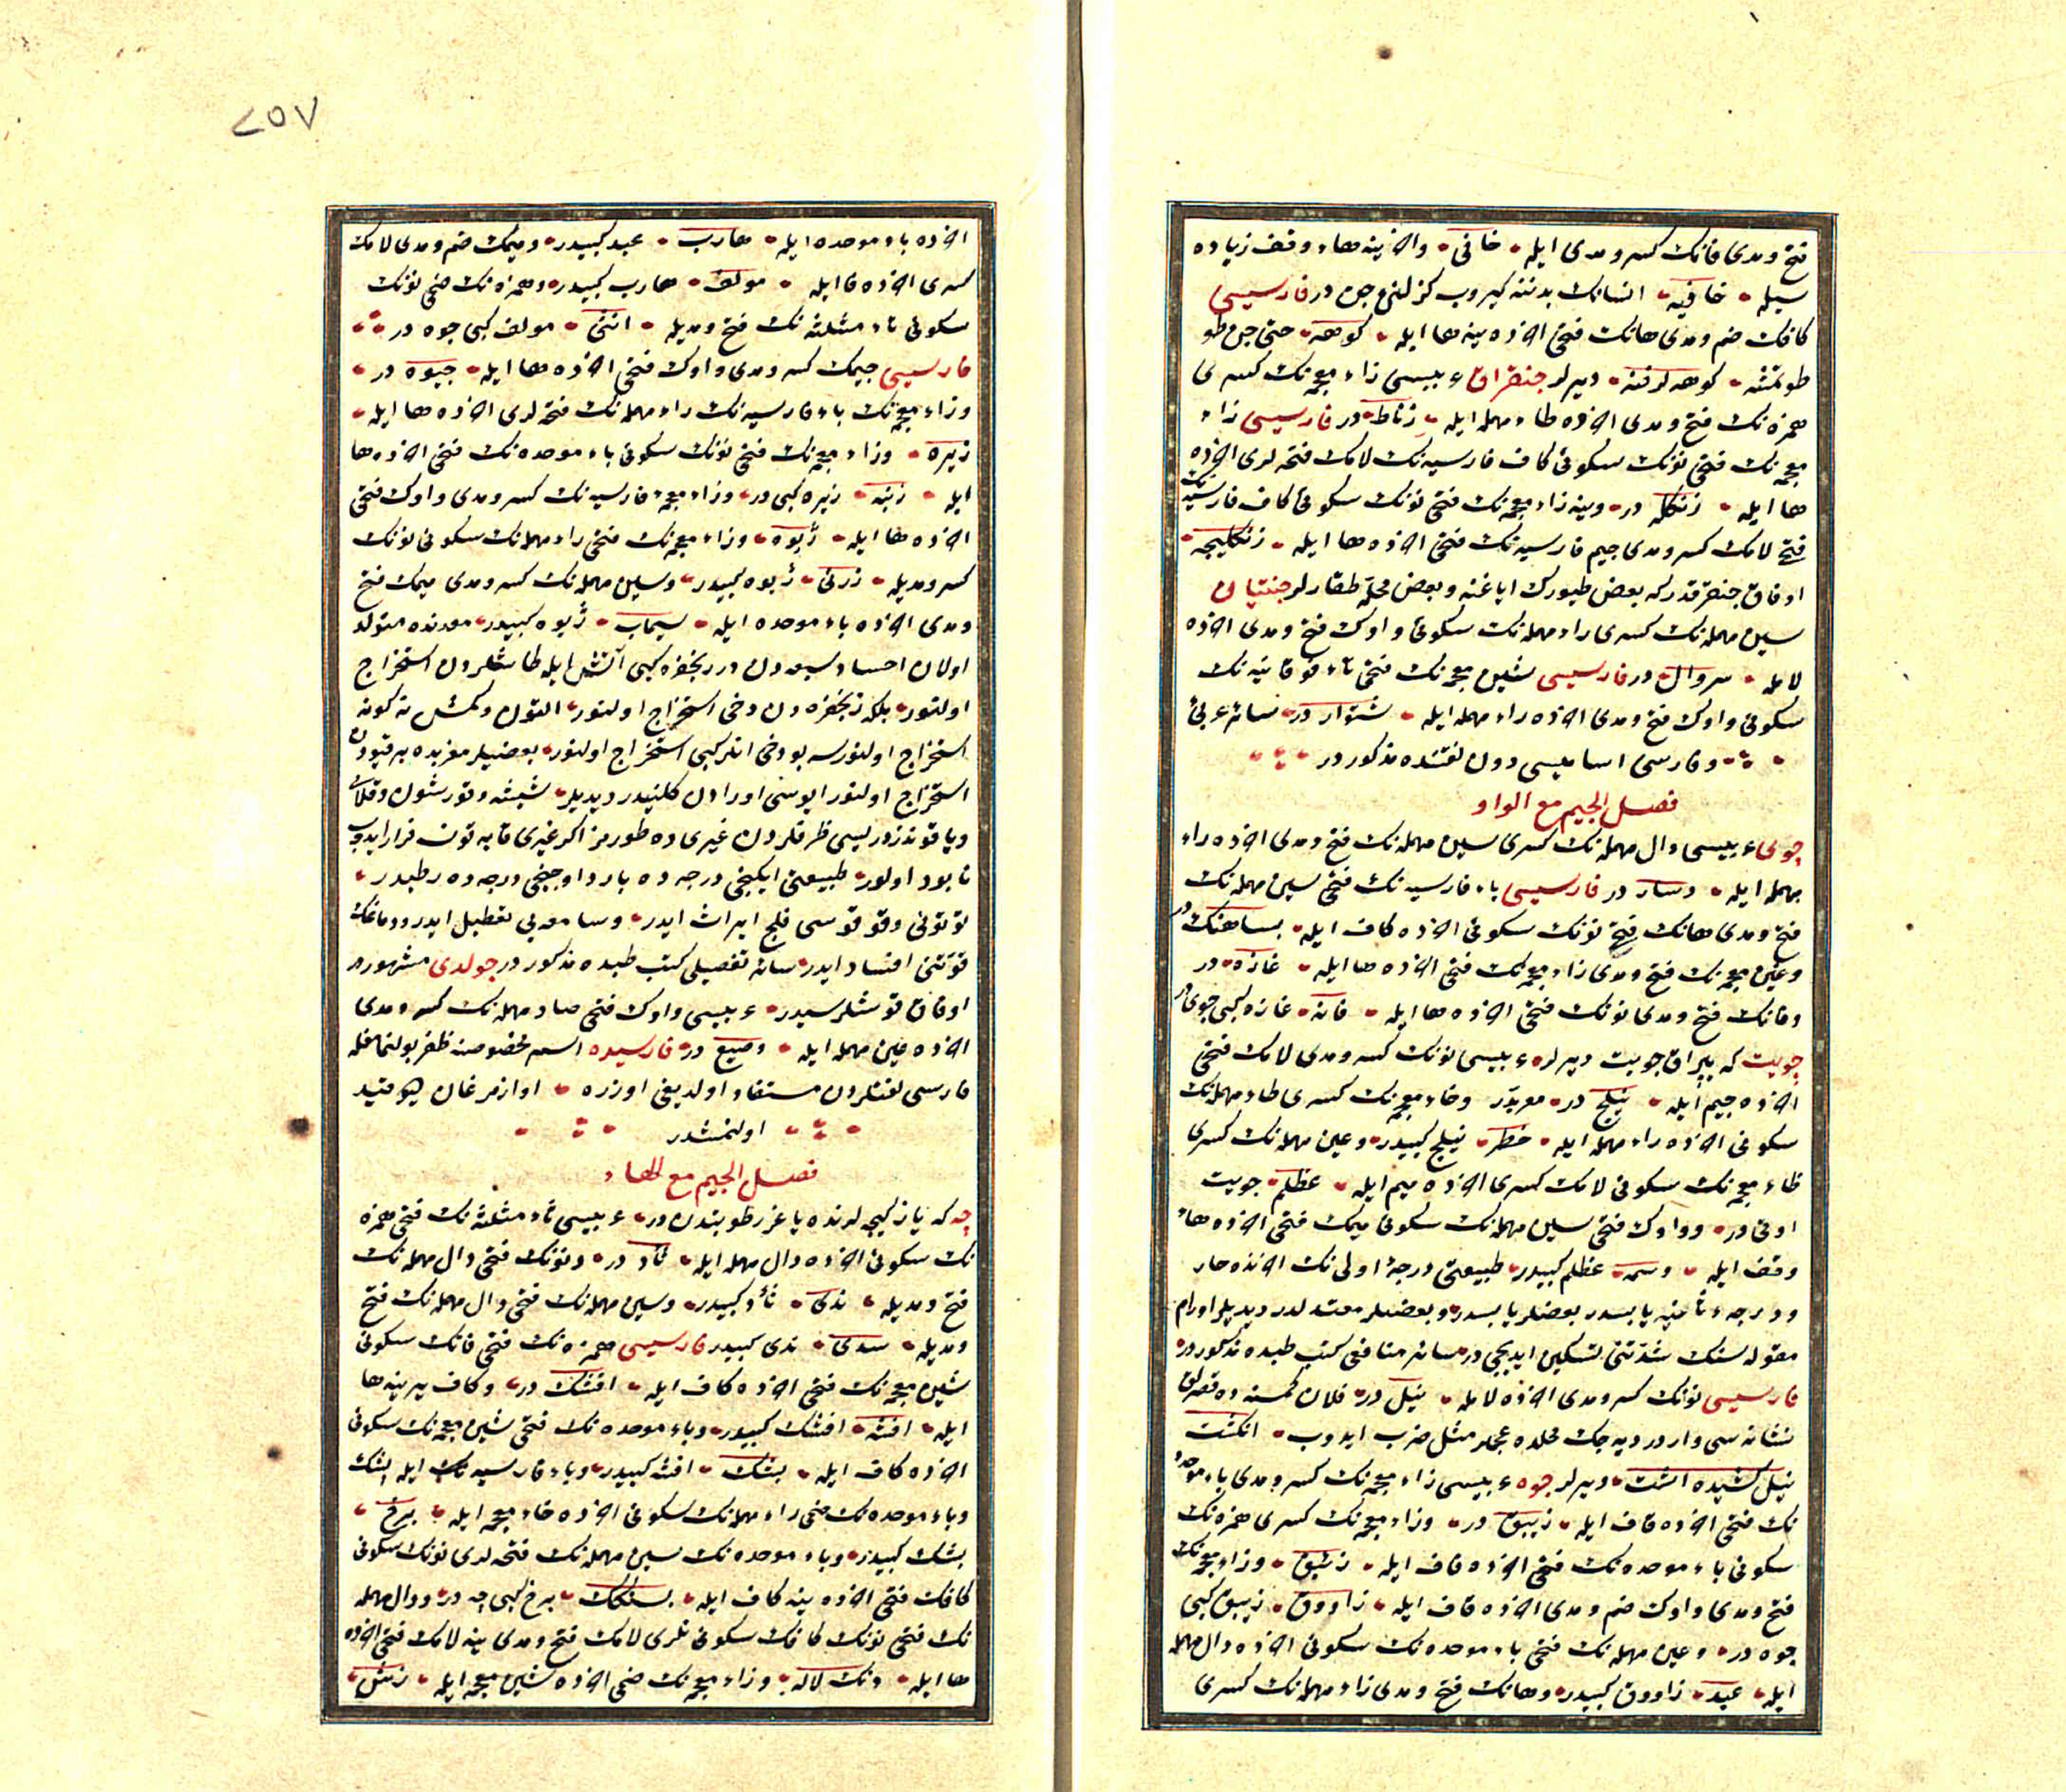 فتح ومدی فانك كسر ومدی ایله خافی واخرینه هاء وقف زیاده
سیله خافیه انسانك بدننه كیروب كزلنن جن در فارسیسی
كافك ضم ومدی هانك فتحی اخرده ینه ها ایله كوهه حتی جن طو
طوتمشه كوهه كرفته دیرلر جنقراق عربیسی زاء معجمه نك كسری
همزه نك فتح ومدی اخرده طاء مهمله ایله زناط در فارسیسی زاء
معجمه نك فتحی نونك سكونی كاف فارسیه نك لامك فتحه لری اخرده
ها ایله زنكله در وینه زاء معجمه نك فتحی نونك سكونی كاف فارسیه نك
فتح لامك كسر ومدی جیم فارسیه نك فتحی اخرده ها ایله زنكلیچه
اوفاق جنقرقدر كه بعض طیورك ایاغنه وبعض محلّه طقارلر جنتیان
سین مهمله نك كسری راء مهمله نك سكونی واوك فتح ومدی اخرده
لامله سروال در فارسیسی شین معجمه نك فتحی تاء فوقانیه نك
سكونی واوك فتح ومدی اخرده راء مهمله ایله شتوار در سائر عربی
وفارسی اسامیسی دون لغتنده مذكور در
فصل الجیم مع الواو
جوی عربیسی دال مهمله نك كسری سین مهمله نك فتح ومدی اخرده راء
مهمله ایله دسار در فارسیسی باء فارسیه نك فتحی سین مهمله نك
فتح ومدی هانك فتح نونك سكونی اخرده كاف ایله بساهنك در
وغین معجمه نك فتح ومدی زاء معجمه نك فتحی اخرده ها ایله غازه در
وفانك فتح ومدی نونك فتحی اخرده ها ایله فانه غازه كبی جوی در
جویت كه بیراق جویت دیرلر عربیسی نونك كسر ومدی لامك فتحی
اخرده جیم ایله نیلج در معربدر وخاء معجمه نك كسری طاء مهمله نك
سكونی اخرده راء مهمله ایله خطر نیلج كبیدر وعین مهمله نك كسری
ظاء معجمه نك سكونی لامك كسری اخرده میم ایله عظلم جویت
اوتی در وواوك فتحی سین مهمله نك سكونی میمك فتحی اخرده هاء
وقف ایله وسمه عظلم كبیدر طبیعتی درجۀ اولی نك اخرنده حار
ودرجۀ ثانیه یابسدر بعضلر یابسدر وبعضیلر معتدلدر دیدیلر اورام
مقوله سنك شدّتنی تسكین ایدیجی در سائر منافعی كتب طبده مذكوردر
فارسیسی نونك كسر ومدی اخرده لامله نیل در فلان كمسنه ده قصرلق
نشانه سی واردر دیه جك محلده عجملر مثل ضرب ایدوب انكشت
نیل كشیده است دیرلر جوه عربیسی زاء معجمه نك كسر ومدی باء موحده
نك فتحی اخرده قاف ایله زیبق در وزاء معجمه نك كسری همزه نك
سكونی باء موحده نك فتحی اخرده قاف ایله زئبق وزاء معجمه نك
فتح ومدی واوك ضم ومدی اخرده قاف ایله زاووق زیبق كبی
جوه در وعین مهمله نك فتحی باء موحده نك سكونی اخرده دال مهمله
ایله عبد زاووق كبیدر وهانك فتح ومدی زاء مهمله نك كسری
۲۵۷
اخرده باء موحده ایله هارب عبد كبیدر ومیمك ضم ومدی لامك
كسری اخرده فا ایله مولف هارب كبیدر وهمزه نك ضمی نونك
سكونی ثاء مثلثه نك فتح ومدیله انثی مولف كبی جوه در
فارسیسی جیمك كسر ومدی واوك فتحی اخرده ها ایله جیوه در
وزاء معجمه نك باء فارسیه نك راء مهمله نك فتحه لری اخرده ها ایله
زپره وزاء معجمه نك فتحی نونك سكونی باء موحده نك فتحی اخرده ها
ایله زنبه زپره كبی در وزاء معجمۀ فارسیه نك كسر ومدی واوك فتحی
اخرده ها ایله ژیوه وزاء معجمه نك فتحی راء مهمله نك سكونی نونك
كسر ومدیله زرنی ژیوه كبیدر وسین مهمله نك كسر ومدی میمك فتح
ومدی اخرده باء موحده ایله سیماب ژیوه كبیدر معدنده متولد
اولان احساد سبعه دن در زنجفره كبی آتش ایله طاشلردن استخراج
اولنور بلكه زنجفره دن دخی استخراج اولنور التون وكمش نه كونه
استخراج اولنورسه بو دخی انلر كبی استخراج اولنور بعضیلر مغربده بر قیودن
استخراج اولنور ایوسی اورادن كلنیدر دیدیلر شیشه وتورشون وقلای
ویاقوتدزور لیسی ظرفلردن غیریده طورمز اكر غیری قابه قونسه فرار ایدوب
نابود اولور طبیعتی ایكنجی درجه ده بارد اوچنجی درجه ده رطبدر
توتونی وقوقوسی فلج ایراث ایدر وسامعه یی تعطیل ایدر ودماغك
قوتنی افساد ایدر سائر تفصیلی كتب طبده مذكور در جولدی مشهوردر
اوفاق قوشلر سیدر عربیسی واوك فتحی صاد مهمله نك كسر ومدی
اخرده عین مهمله ایله وصیع در فارسیده اسم مخصوصنه ظفر بولنمامغله
فارسی لغتلردن مستفاد اولدیغی اوزره اواز مرغان هیو قید
اولنمشدر
فصل الجیم مع الهاء
چه كه یاز كیجه لرنده یاغر رطوبتدن در عربیسی ثاء مثلثه نك فتحی همزه
نك سكونی اخرده دال مهمله ایله ثأد در ونونك فتحی دال مهمله نك
فتح ومدیله ندی ثأد كبیدر وسین مهمله نك فتحی دال مهمله نك فتح
ومدیله سدی ندی كبیدر فارسیسی همزه نك فتحی فانك سكونی
شین معجمه نك فتحی اخرده كاف ایله افشك در وكاف یرینه ها
ایله افشه افشك كبیدر وباء موحده نك فتحی شین معجمه نك سكونی
اخرده كاف ایله بشك افشه كبیدر وباء فارسیه نك ایله پشك
وباء موحده نك ضمی راء مهمله نك سكونی اخرده خاء معجمه ایله برخ
بشك كبیدر وباء موحده نك سین مهمله نك فتحه لری نونك سكونی
كافك فتحی اخرده ینه كاف ایله بسنكك برخ كبی چه در ودال مهمله
نك فتحی نونك كافك سكونی نلری لامك فتح ومدی ینه لامك فتحی اخرده
ها ایله دنك لاله وزاء معجمه نك ضمی اخرده شین معجمه ایله زش